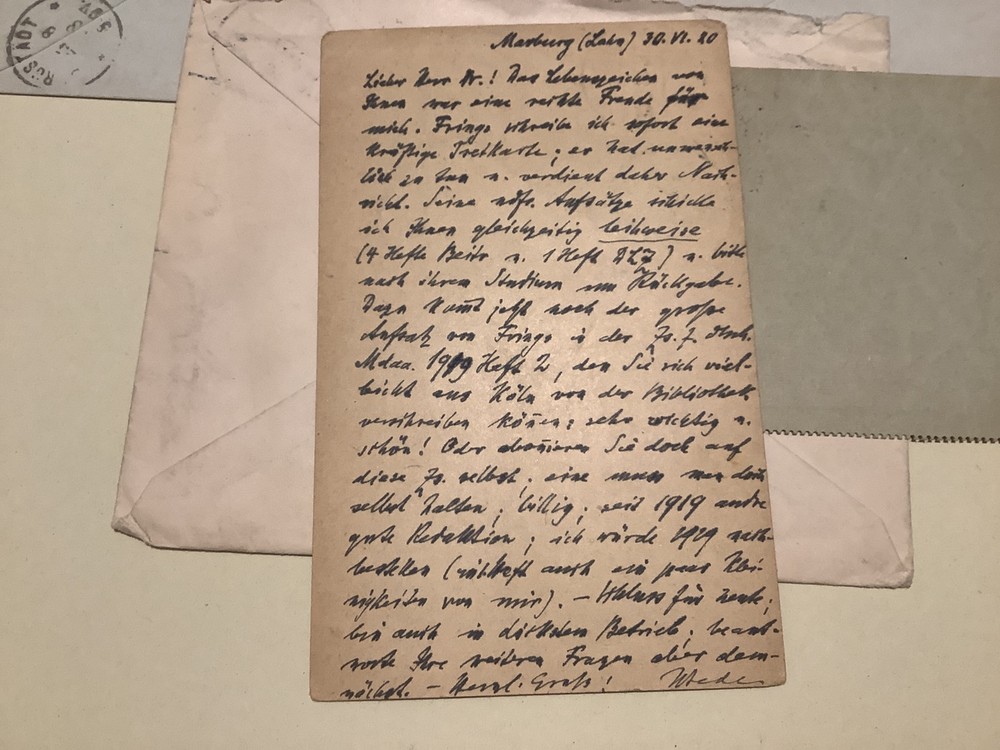 Marburg (Lahn) 30.VI.20
Lieber Herr Dr.! Das Lebenszeichen von
Ihnen war eine rechte Freude für
mich. Frings schreibe ich sofort eine
kräftige Tretkarte; er hat unmensch-
lich zu tun u. verdient daher Nach-
sicht. Seine ndfr. Aufsätze schicke
ich Ihnen gleichzeitig leihweise
(4 Hefte Beitr u. 1 Heft DLZ) u. bitte
nach ihrem Studium um Rückgabe.
Dazu kom̅t jetzt noch der große
Aufsatz von Frings i. der Zs. f. dtsch.
Mdaa. 1919 Heft 2, den Sie sich viel-
leicht aus Köln von der Bibliothek
verschreiben kön̅en: sehr wichtig u.
schön! Oder abon̅ieren Sie doch auf
diese Zs. selbst; eine muss man doch
selbst halten; billig; seit 1919 andre
gute Redaktion; ich würde 1919 nach-
bestellen (enthält auch ein paar Klei-
nigkeiten von mir). – Schluss für heute;
bin auch in dickstem Betrieb; beant-
worte Ihre weiteren Fragen aber dem-
nächst. – Herzl. Gruß! Wrede